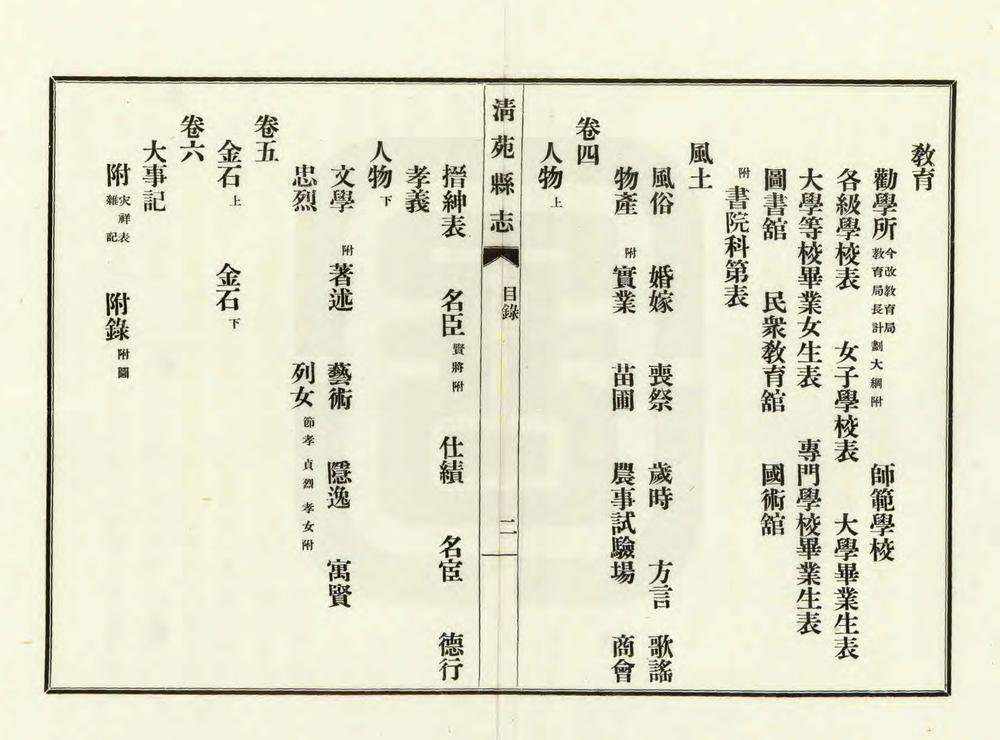 教育
勸學所 今改教育局教育局長計劃大綱附 師範學校
各級學校表 女子學校表 大學畢業生表
大學等校畢業女生表 專門學校畢業生表
圖書館 民衆教育館 國術館
附書院科第表
風土
風俗 婚嫁 喪祭 歲時 方言 歌謠
物產 附實業 苗圃 農事試驗場 商會
卷四
人物上
清苑縣志 目錄 二
搢紳表 名臣賢將附 仕績 名宦 德行
孝義
人物下
文學 附著述 藝術 隱逸 寓賢
忠烈 列女節孝 貞烈 孝女附
卷五
金石上 金石下
卷六
大事記
附灾祥表雜記 附錄附圖